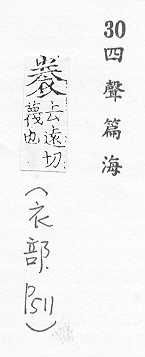 30
四聲篇海
去遠切
襪也
(衣部 P511)